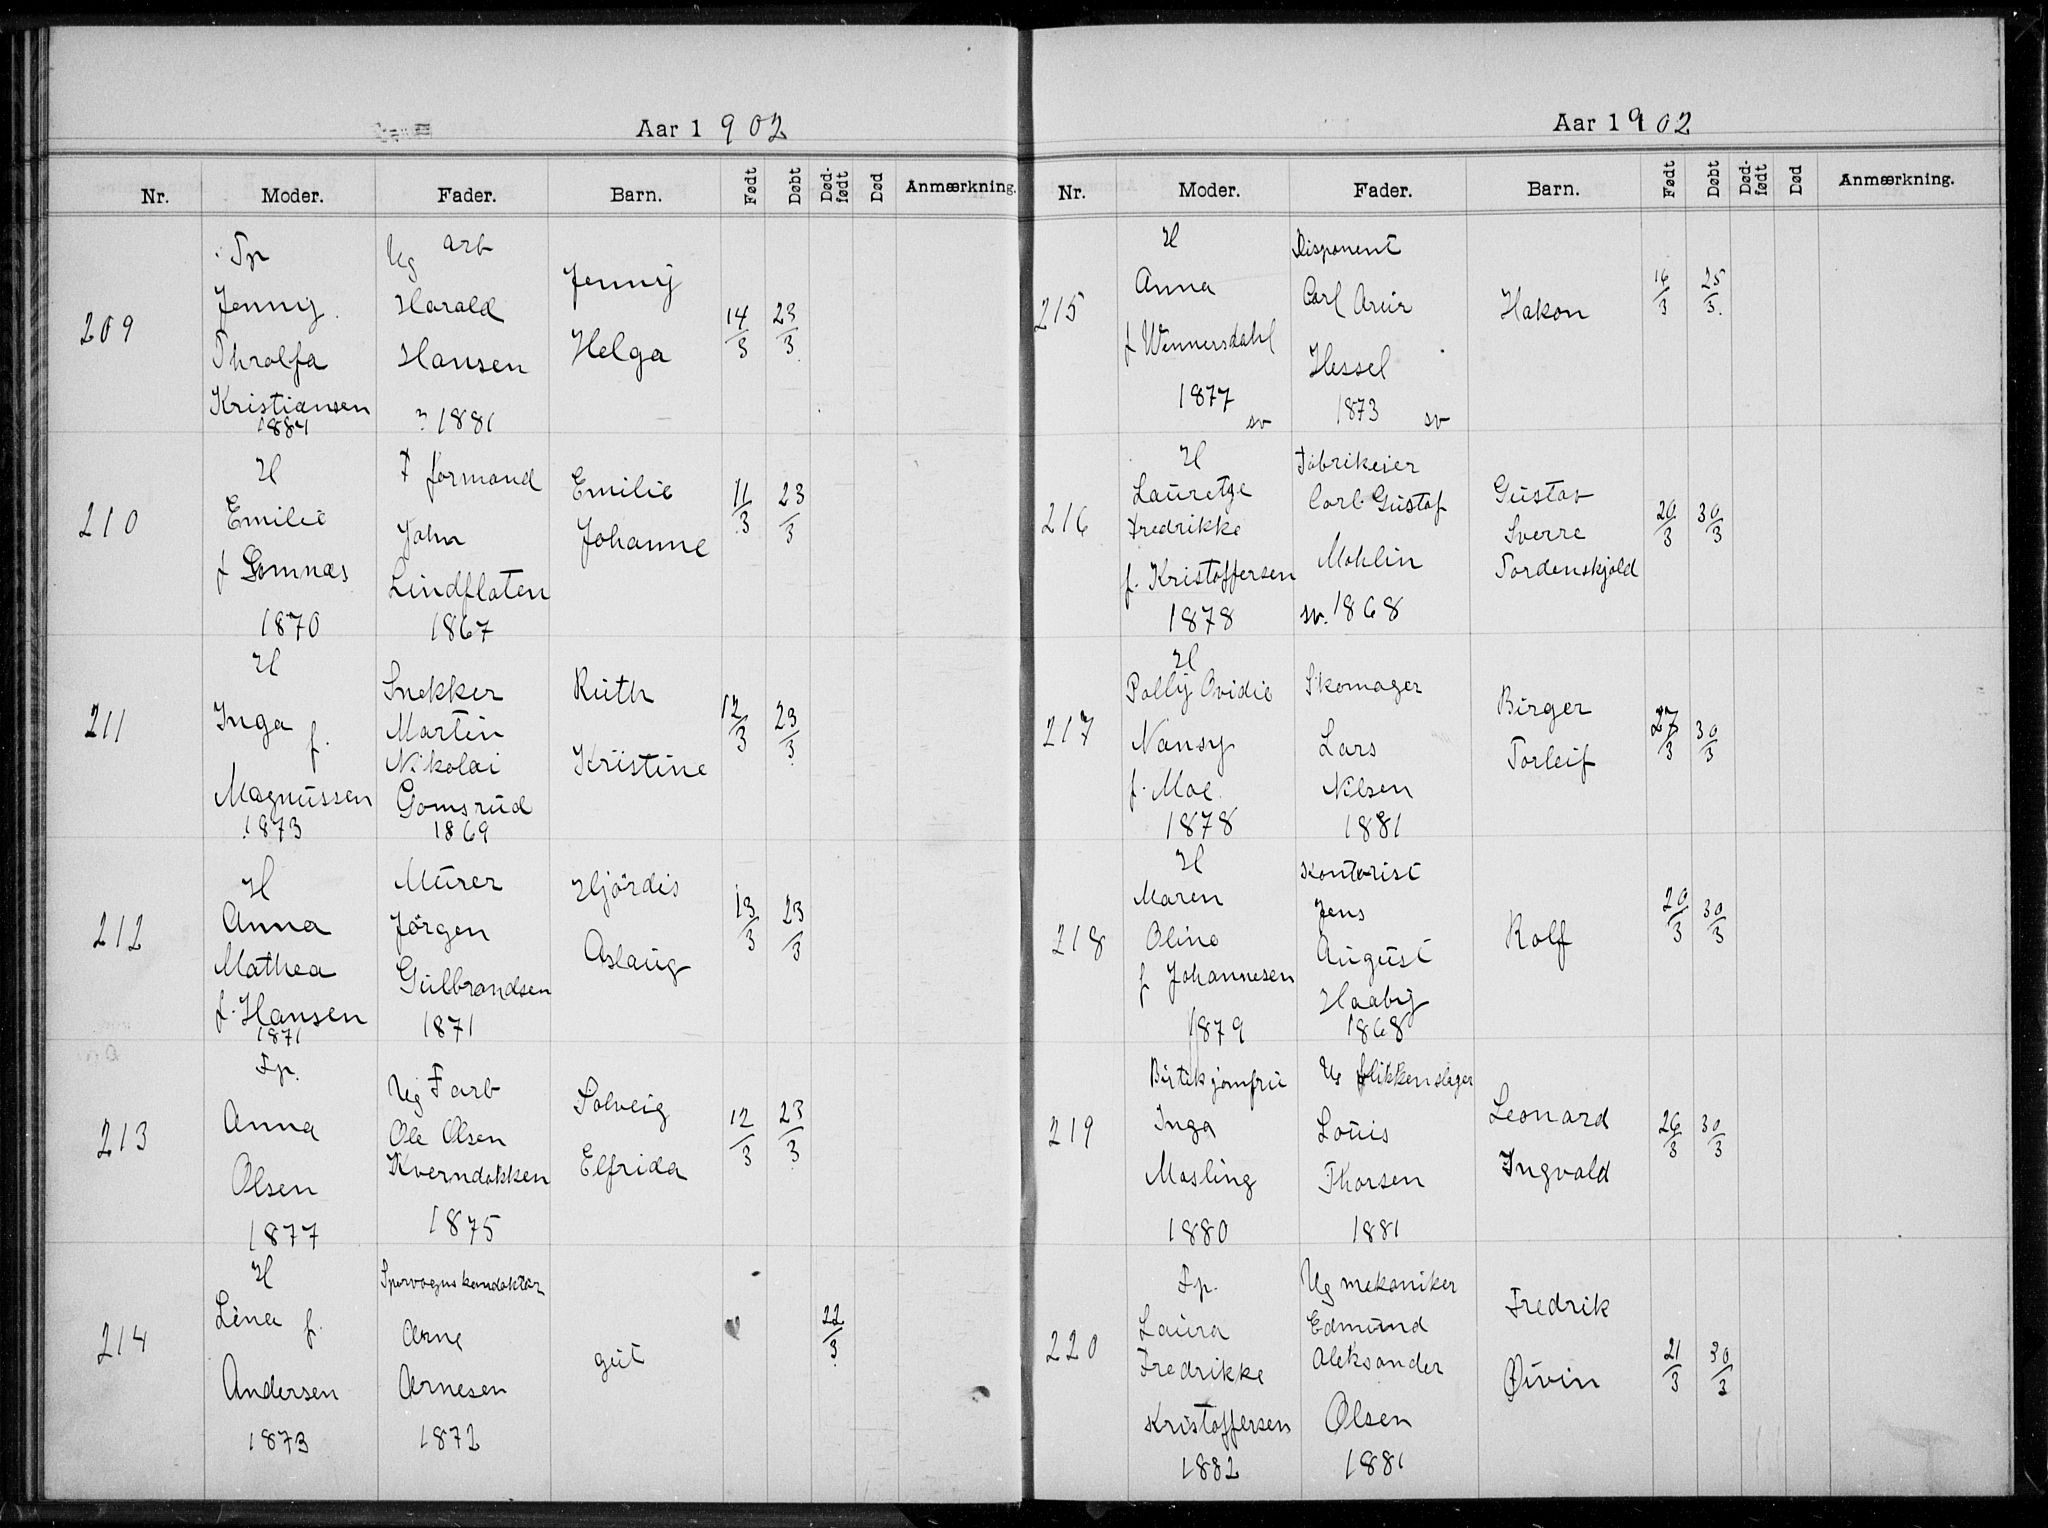 Aar 1902
Nr. Moder. Fader. Barn. Født Døbt Død-født Død Anmærkning.
209
Tp
Jenny
Throlfa
Kristiansen
1881
Ug arb
Harald
Hansen
1881
Jenny
Helga
14/3 23/3
210
H
Emilie
f Somnæs
1870
F formand
John
Lindfloten
1867
Emilie
Johanne
11/3 23/3
211
H
Inga f.
Magnussen
1873
Snekker
Martin
Nikolai
Gomsrud
1869
Ruth
Kristine
12/3 23/3
212
H
Anna
Mathea
f. Hansen
1871
Murer
Jörgen
Gulbrandsen
1871
Hjördis
Aslaug
13/3 23/3
213
Fp.
Anna
Olsen
1877
Ug F arb
Ole Olsen
Kverndokken
1875
Solveig
Elfrida
12/3 23/3
214
H
Lina f.
Andersen
1873
Sporvognskonduktör
Arne
Arnesen
1872
gut
22/3
Aar 1902
Nr. Moder. Fader. Barn. Født Døbt Død-født Død Anmærkning.
215
H
Anna
f Wennersdahl
1877
sv
Disponent
Carl
Hessel
1873 sv
Hakon
16/3 25/3
216
H
Lauretze
Fredrikke
f. Kristoffersen
1878
Fabrikeier
Carl Gustaf
Mohlin
sv. 1868
Gustav
Sverre
Tordenskjold
20/3 30/3
217
H
Polly Ovidie
Nansy
f. Moe
1878
Skomager
Lars
Nilsen
1881
Birger
Torleif
27/3 30/3
218
H
Maren
Oline
f Johannesen
1879
Kontorist
Jens
August
Haaby
1868
Rolf
20/3 30/3
219
Butikjomfru
Inga
Mosling
1880
Ug blikkenslager
Louis
Thorsen
1881
Leonard
Ingvald
26/3 30/3
220
Fp.
Laura
Fredrikke
Kristoffersen
1882
Ug mekaniker
Edmund
Aleksander
Olsen
1881
Fredrik
Øivin
21/3 30/3